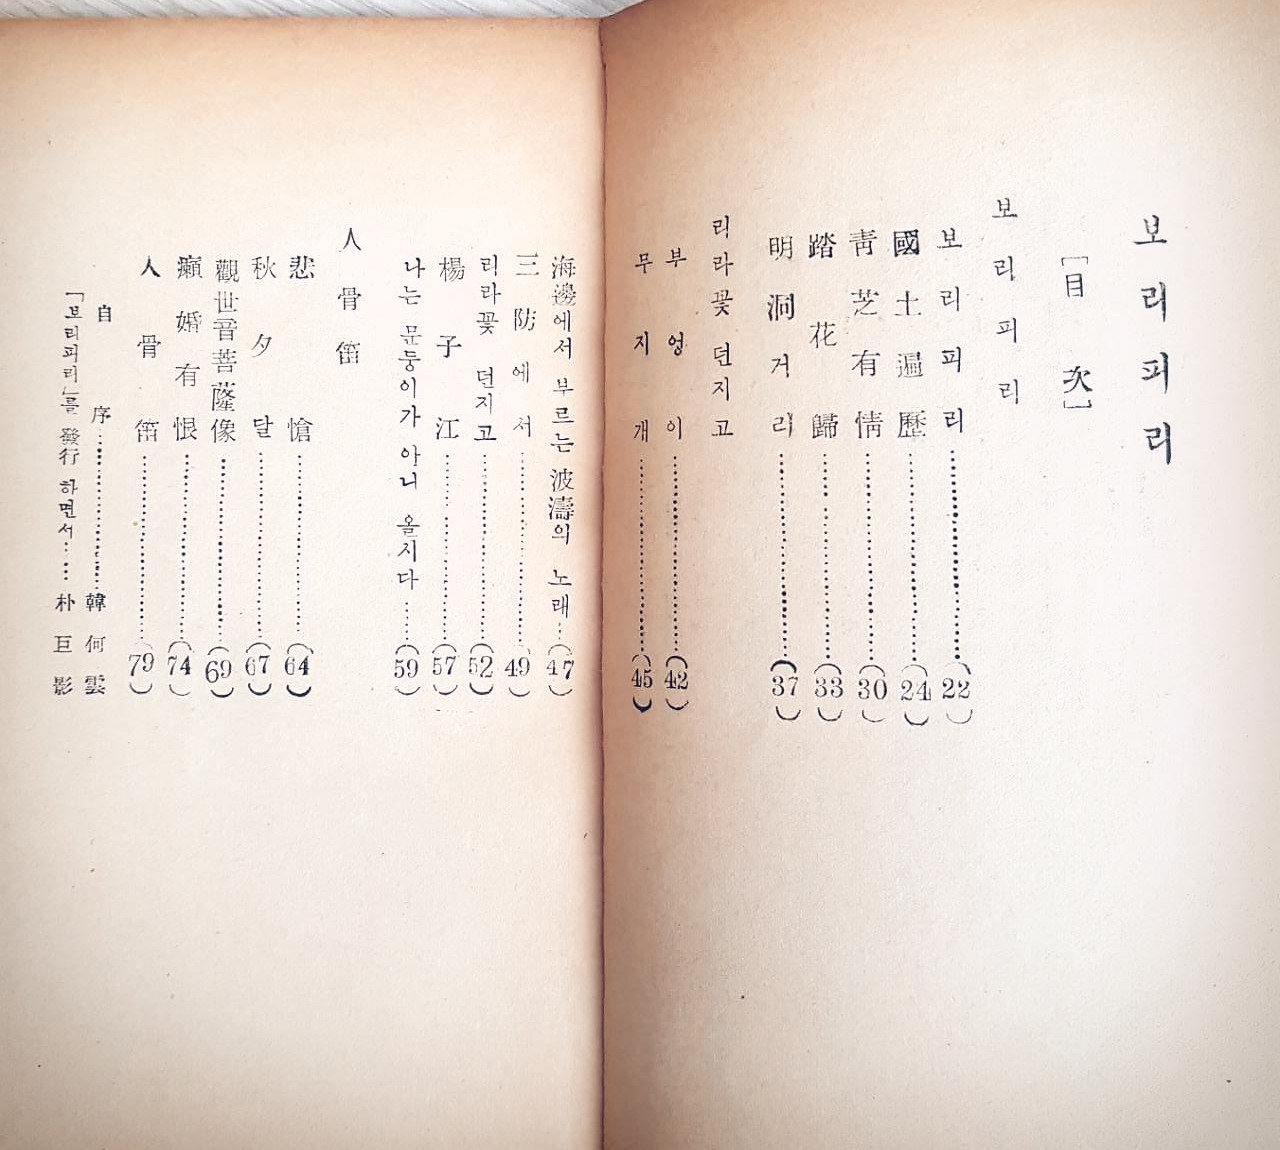 보리피리
[目次]
보리피리
보리피리 (22)
國土遍歷 (24)
靑芝有情 (30)
踏花歸 (33)
明洞거리 (37)
리라꽃 던지고
부엉이 (42)
무지개 (45)
海邊에서 부르는 波濤의 노래 (47)
三防에서 (49)
리라꽃 던지고 (52)
楊子江 (57)
나는 문둥이가 아니 올시다 (59)
人骨笛
悲愴 (64)
秋夕달 (67)
觀世音菩薩像 (69)
癩婚有恨 (74)
人骨笛 (79)
自序 韓何雲
「보리피리」를 發行 하면서 朴巨影